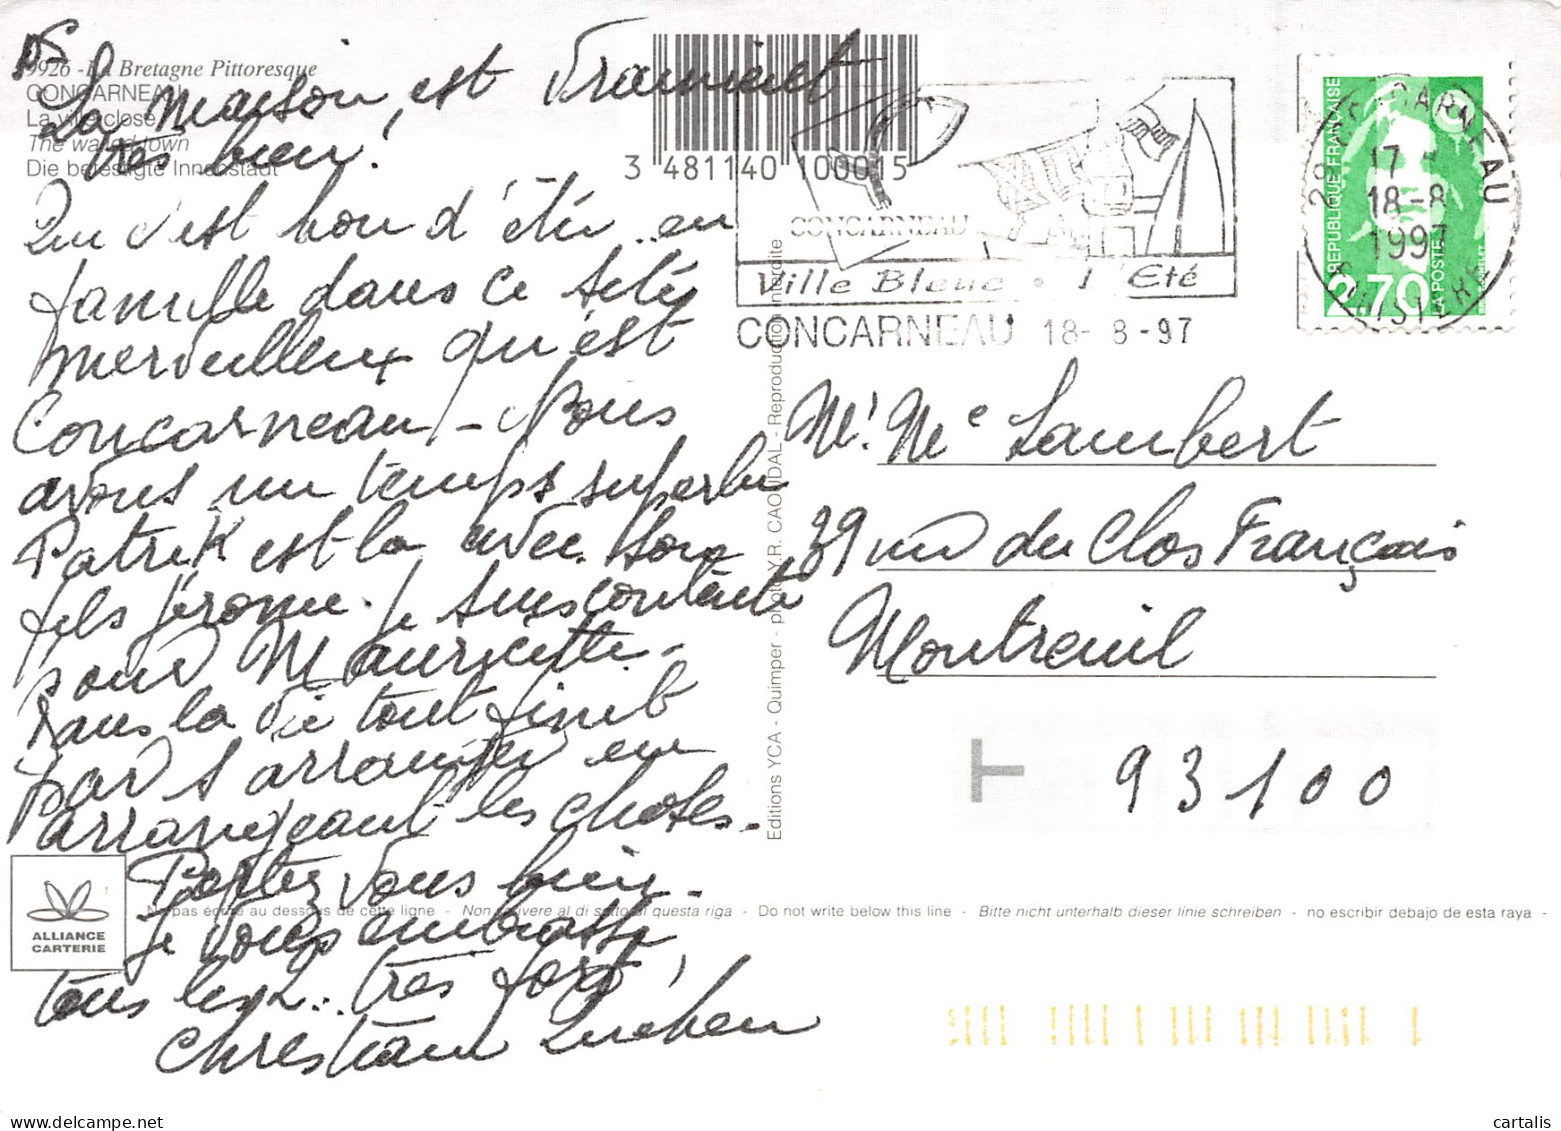 PS
La maison, est vraiment
très bien!
9926 - La Bretagne Pittoresque
CONCARNEAU
La ville close
The walled town
Die befestigte Innenstadt
3 481140 100015
CONCARNEAU
Ville Bleue • l'Eté
CONCARNEAU 18- 8 -97
29 CONCARNEAU
17
18-8
1997
FINISTERE
REPUBLIQUE FRANÇAISE
2,70
LA POSTE
Qu c'est bon d'être .. en
famille dans ce site
merveilleux qu'est
Concarneau - Nous
avons un temps superbe
Patrik est la avec son
fils Jérome. Je suis contente
pour Mauricette -
Dans la vie tout finit
par s'arranger en
arrangeant les choses -
Portez vous bien -
Je vous embrasse
tous les 2 .. très fort,
Christian
Mr. Me Lambert
39 rue du Clos Français
Montreuil
93100
Editions YCA - Quimper - photo Y.R. CAOUDAL - Reproduction interdite
ALLIANCE
CARTERIE
Ne pas écrire au dessous de cette ligne - Non scrivere al di sotto di questa riga - Do not write below this line - Bitte nicht unterhalb dieser linie schreiben - no escribir debajo de esta raya -
www.delcampe.net
cartalis